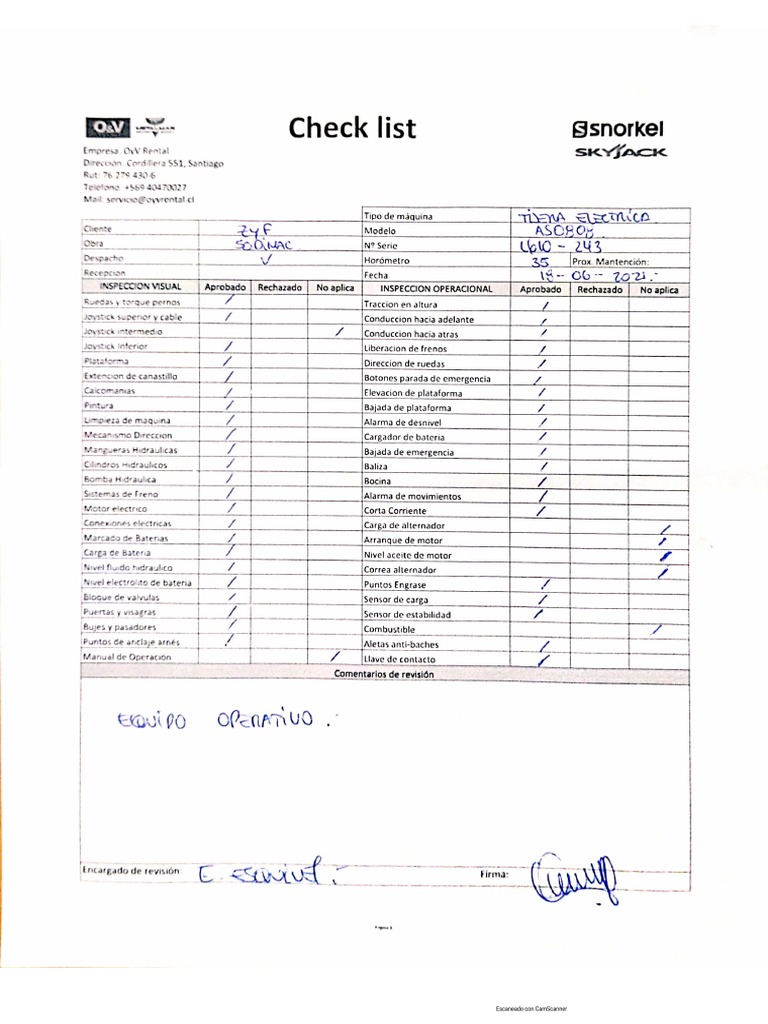 O&V
Check list
snorkel
SKYJACK
Empresa: OyV Rental
Dirección: Cordillera 551, Santiago
Rut: 76 279 430-6
Telefono: +569 40470027
Mail: servicio@oyvrental.cl
Tipo de máquina TIJERA ELECTRICA
Cliente ZyF Modelo
Obra SODIMAC Nº Serie
Despacho V Horómetro 35 Prox. Mantención:
Recepcion Fecha 18-06-2021.-
INSPECCION VISUAL Aprobado Rechazado No aplica INSPECCION OPERACIONAL Aprobado Rechazado No aplica
Ruedas y torque pernos / Traccion en altura /
Joystick superior y cable / Conduccion hacia adelante /
Joystick intermedio / Conduccion hacia atras /
Joystick Inferior / Liberacion de frenos /
Plataforma / Direccion de ruedas /
Extencion de canastillo / Botones parada de emergencia /
Calcomanias / Elevacion de plataforma /
Pintura / Bajada de plataforma /
Limpieza de maquina / Alarma de desnivel /
Mecanismo Direccion / Cargador de bateria /
Mangueras Hidraulicas / Bajada de emergencia /
Cilindros Hidraulicos / Baliza /
Bomba Hidraulica / Bocina /
Sistemas de Freno / Alarma de movimientos /
Motor electrico / Corta Corriente /
Conexiones electricas / Carga de alternador /
Marcado de Baterias / Arranque de motor /
Carga de Bateria / Nivel aceite de motor /
Nivel fluido hidraulico / Correa alternador /
Nivel electrolito de bateria / Puntos Engrase /
Bloque de valvulas / Sensor de carga /
Puertas y visagras / Sensor de estabilidad /
Bujes y pasadores / Combustible /
Puntos de anclaje arnés / Aletas anti-baches /
Manual de Operación / Llave de contacto /
Comentarios de revisión
EQUIPO OPERATIVO .-
Encargado de revisión E. Firma:
Página 1
Escaneado con CamScanner